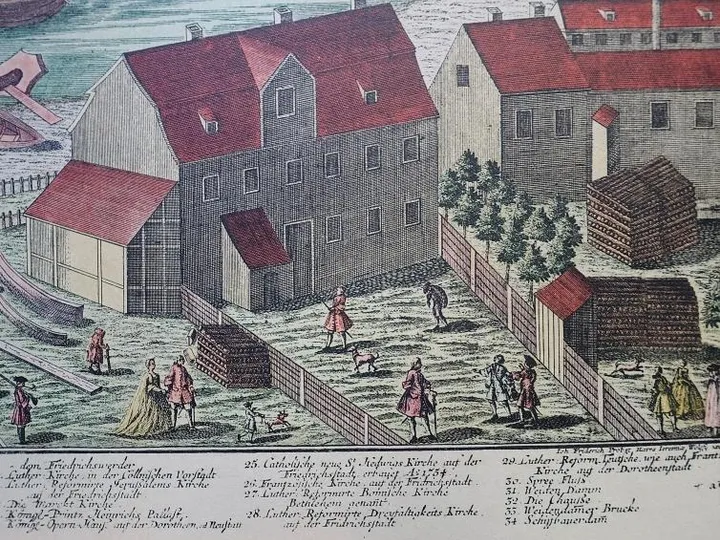 Joh. Friderich Probst, Haered. Jeremiae Wolffy
dem Friedrichswerder
Luther Kirche in der Cöllnischen Vorstadt
Luther Reformirte Jerusalems Kirche
auf der Friedrichsstadt
Die Marckt Kirche
Königl. Printz Heinrichs Pallast,
Königl. Opern Hauß auf der Dorotheen, od Neustatt
25. Catholische neue St. Hedwigs Kirche auf der
Friedrichsstadt, erbauet Ao. 1754.
26. Frantzösische Kirche auf der Fridrichsstadt
27. Luther Reformirte Böhmische Kirche
Bethlehem genañt
28. Luther. Reformirte Dreyfältigkeits Kirche
auf der Fridrichsstadt
29. Luther. Reform. teutsche, wie auch Frantz
Kirche auf der Dorotheenstadt
30. Spree Fluß
31. Weiden Damm
32. Die Chaußée
33. Weidendamer Brucke
34. Schiffbauerdam